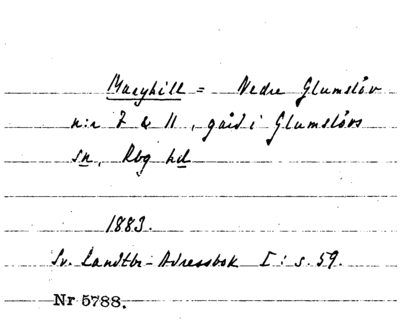 Maryhill = Nedre Glumslöv
n:r 7 & 11, gård i Glumslövs
sn, Rbg hd
1883.
Sv. Landtbr.-Adressbok I: s. 59.
Nr 5788.